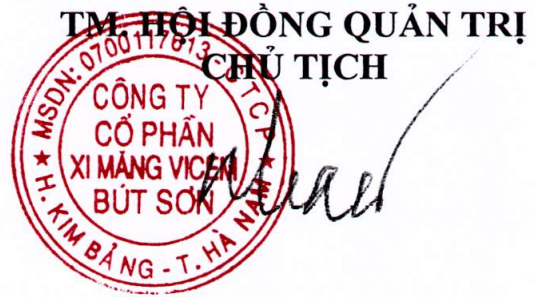 TM. HỘI ĐỒNG QUẢN TRỊ
CHỦ TỊCH
MSDN: 0700117613 - C.T.C.P
CÔNG TY
CỔ PHẦN
XI MĂNG VICEM
BÚT SƠN
★ H. KIM BẢNG - T. HÀ NAM ★